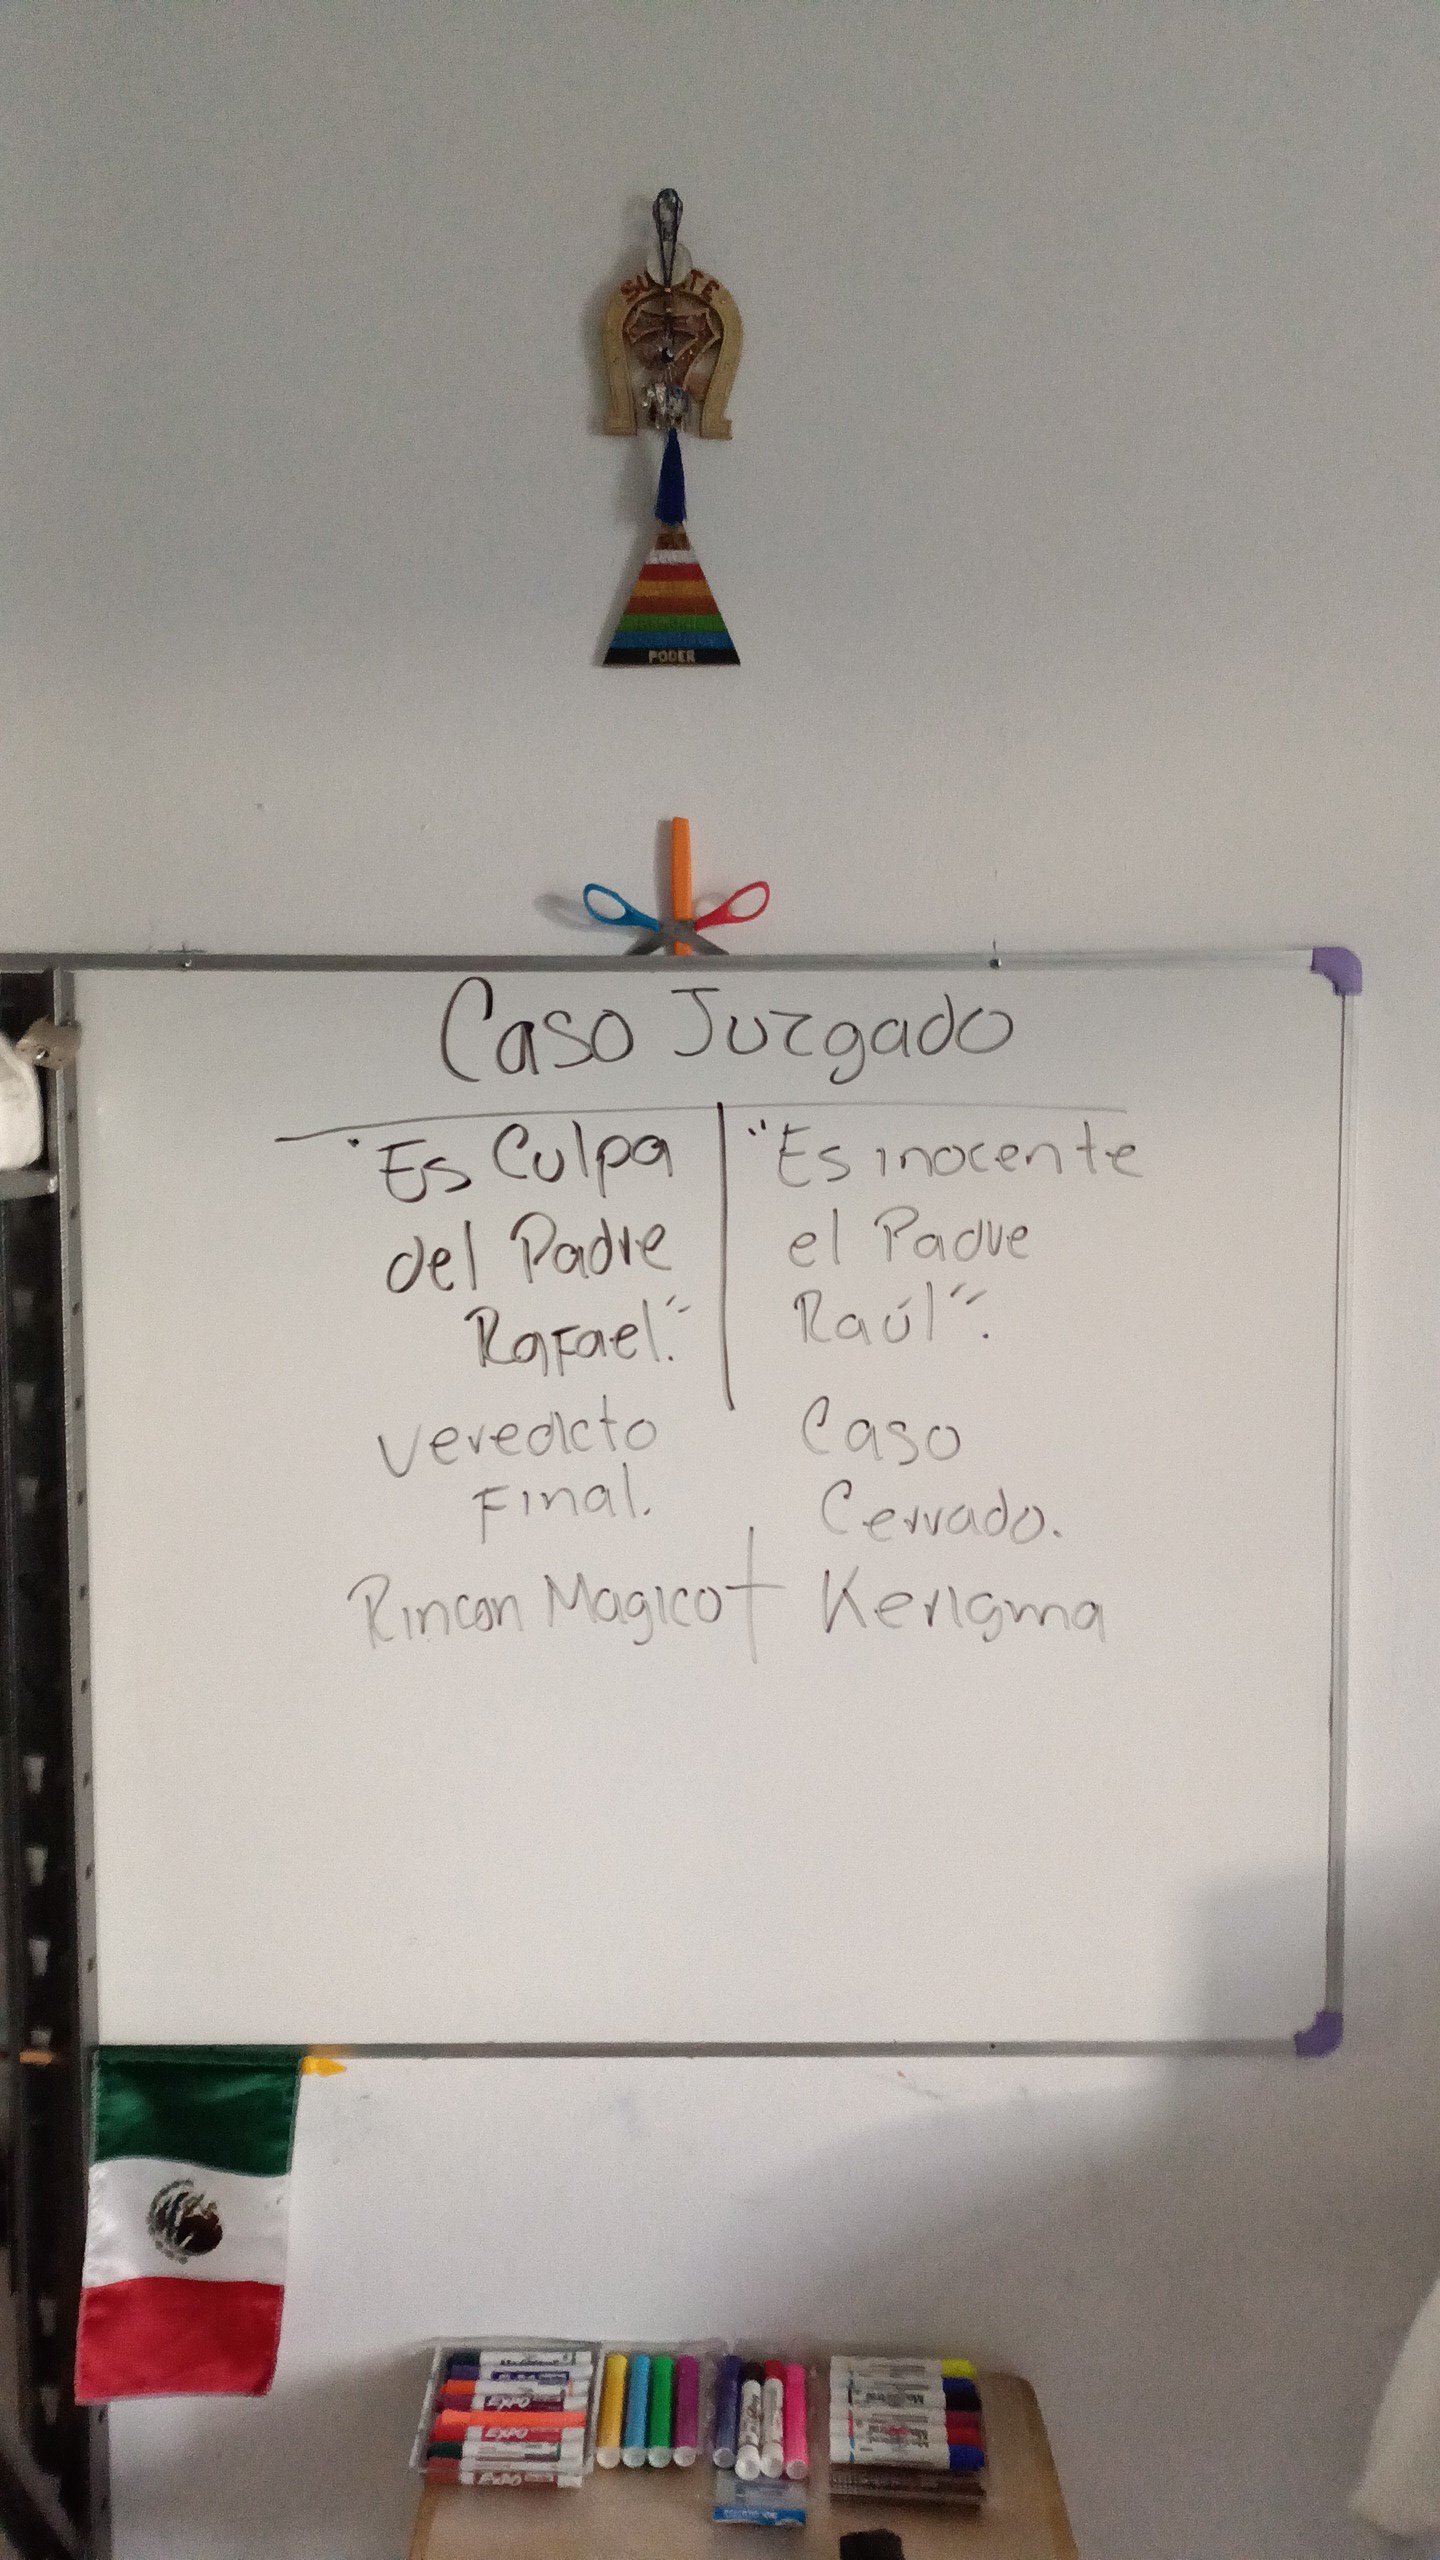 SUERTE
PODER
Caso Juzgado
"Es Culpa
del Padre
Rafael."
"Es inocente
el Padre
Raúl".
Veredicto
Final.
Caso
Cerrado.
Rincon Magico + Kerigma
EXPO
EXPO
EXPO